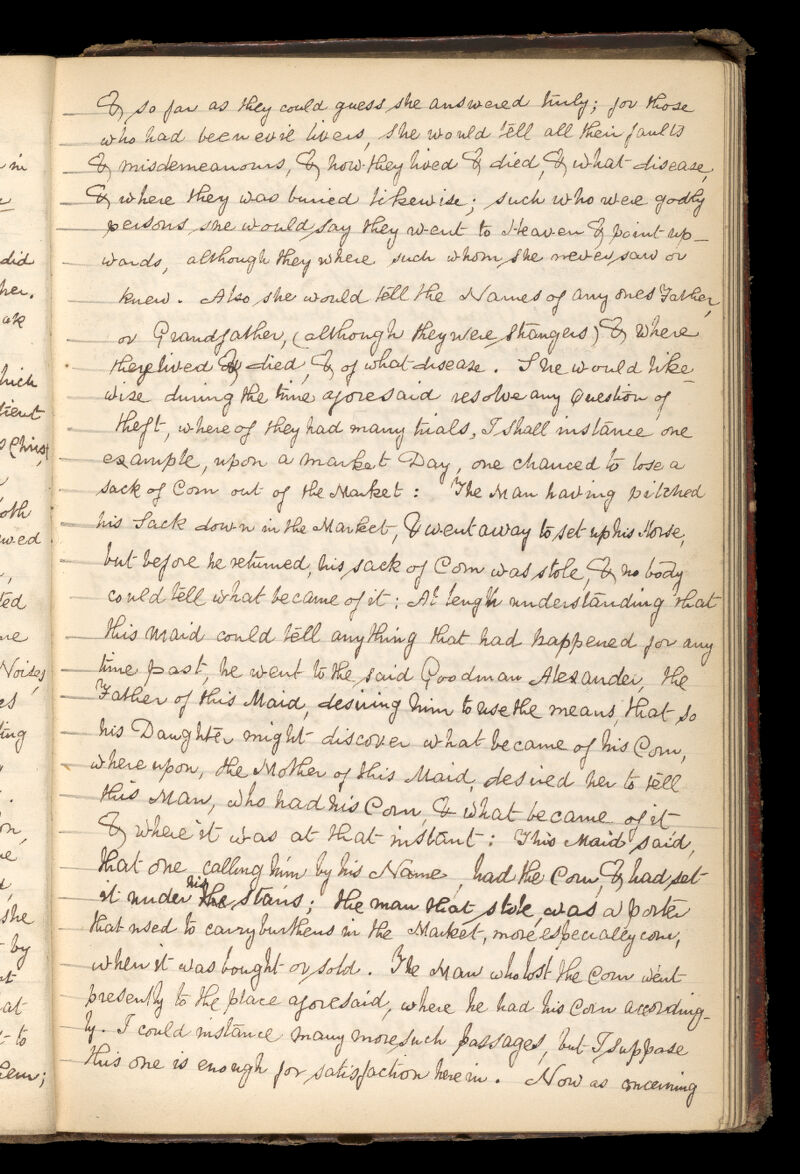 & so far as they could guess she answered truly; for those
who had been evil livers, she would tell all their faults
& misdemeanours, & how they lived & died, & what disease,
& where they was buried likewise; such who were godly
persons she would say they went to Heaven & point up-
wards, although they where such whom she never saw or
knew. Also she would tell the Names of any ones Father,
or Grandfather, (although they were strangers) & where
they lived & died, & of what disease. She would like-
wise during the time aforesaid resolve any Question of
theft, where of they had many trials, I shall instance one
example, upon a market Day, one chanced to lose a
sack of Corn out of the Market: The Man having pitched
his Sack down in the Market, & went away to set up his Horse,
but before he returned, his sack of Corn was stole, & no body
could tell what became of it: At length understanding that
this maid could tell any thing that had happened for any
time past, he went to the said Goodman Alexander, the
Father of this Maid, desiring him to use the means, that so
his Daughter might discover what became of his Corn,
where upon, the Mother of this Maid, desired her to tell
this Man, who had his Corn, & what became of it
& where it was at that instant: This Maid said,
that one calling him by his Name, had the Corn, & had set
it under his the stairs; the man that stole, was a porter
that used to carry burthens in the Market, more especially corn,
when it was bought or sold. The Man who lost the Corn went
presently to the place aforesaid, where he had his Corn according-
ly. I could instance many more such passages, but I suppose
this one is enough for satisfaction herein. Now as concerning
in
did
her.
ak
hich
tient
s Christ
oth
wed
ted
me
Noises,
es
ting
on,
she
by
at
to
them;